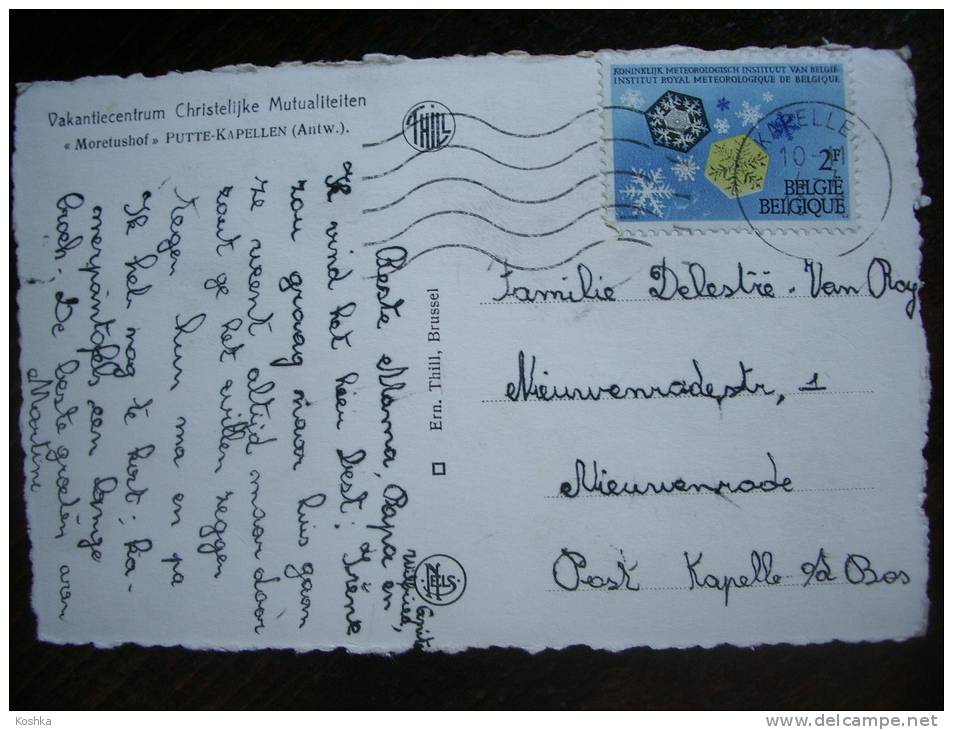 Vakantiecentrum Christelijke Mutualiteiten
« Moretushof » PUTTE-KAPELLEN (Antw.).
THILL
KONINKLIJK METEOROLOGISCH INSTITUUT VAN BELGIË
INSTITUT ROYAL METEOROLOGIQUE DE BELGIQUE
2F
BELGIË
BELGIQUE
KAPELLE
10-
Beste Mama, Papa en
Wilfried,
Ik vind het hier best: Irène
zou graag naar huis gaan
ze weent altijd maar door
zout ge het willen zeggen
tegen hun ma en pa
Ik heb nog te kort: ka-
merpantofels een lange
broek. De beste groeten aan
Martine
Ern. Thill, Brussel
NELS
Familie Delestré - Van Roy
Nieuwenrodestr, 1
Nieuwenrode
Post Kapelle o/d Bos
Koshka
www.delcampe.net